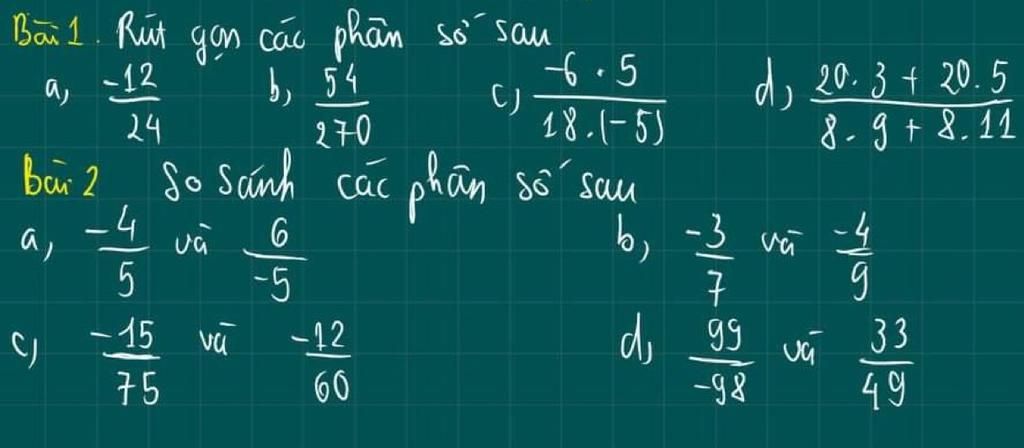 Bài 1. Rút gọn các phân số sau
a, -12/24 b, 54/270 c, -6 . 5/18.(-5) d, 20. 3 + 20. 5/8. 9 + 8. 11
Bài 2 So sánh các phân số sau
a, -4/5 và 6/-5 b, -3/7 và -4/9
c, -15/75 và -12/60 d, 99/-98 và 33/49